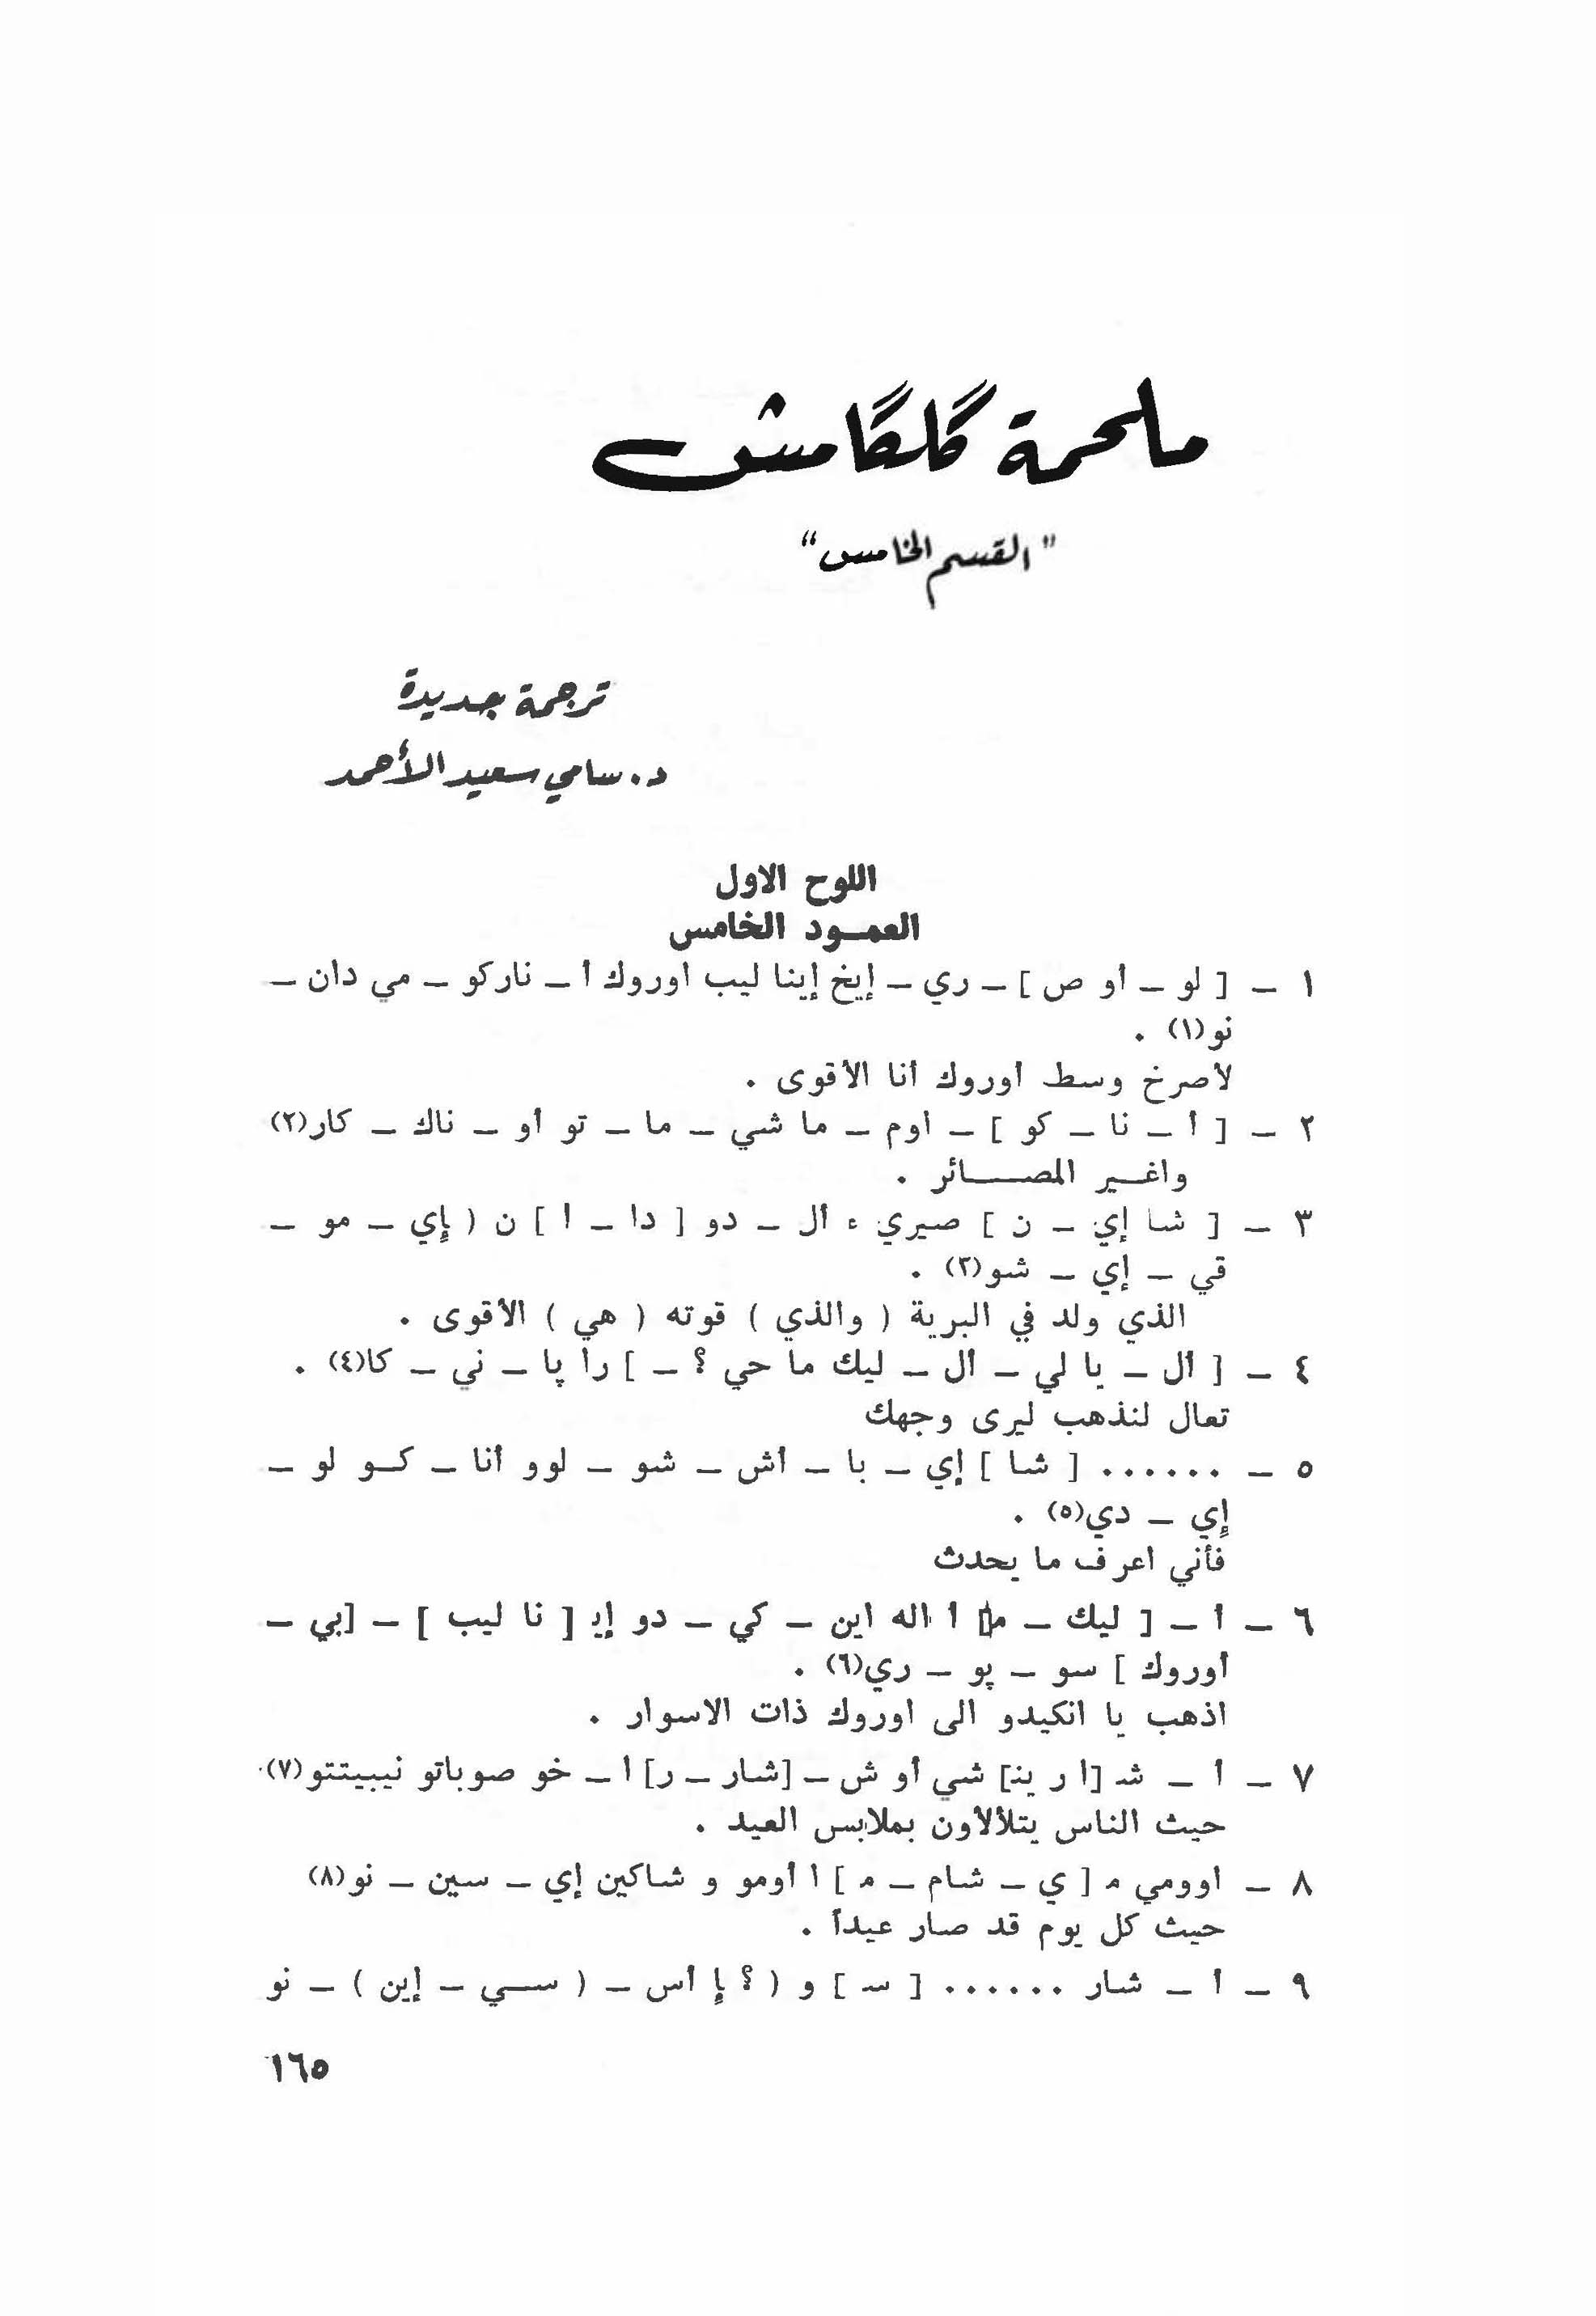 ملحمة گلگامش
"القسم الخامس"
ترجمة جديدة
د. سامي سعيد الأحمد
اللوح الاول
العمـود الخامس
١ ـ [ لو ـ أو ص ] ـ ري ـ إيخ إينا ليب اوروك أ ـ ناركو ـ مي دان ـ
نو(١) .
لأصرخ وسط أوروك أنا الأقوى .
٢ ـ [ أ ـ نا ـ كو ] ـ اوم ـ ما شي ـ ما ـ تو أو ـ ناك ـ كار(٢)
واغـير المصـــائر .
٣ ـ [ شا إي ـ ن ] صيري ء أل ـ دو [ دا ـ أ ] ن ( إي ـ مو ـ
قي ـ إي ـ شو(٣) .
الذي ولد في البرية ( والذي ) قوته ( هي ) الأقوى .
٤ ـ [ أل ـ يا لي ـ أل ـ ليك ما حي ؟ ـ ] را پا ـ ني ـ كا(٤) .
تعال لنذهب ليرى وجهك
٥ ـ ...... [ شا ] إي ـ با ـ أش ـ شو ـ لوو أنا ـ كـو لو ـ
إي ـ دي(٥) .
فأني اعرف ما يحدث
٦ ـ أ ـ [ ليك ـ م] أ اله اين ـ كي ـ دو إيـ [ نا ليب ] ـ [بي ـ
أوروك ] سو ـ پو ـ ري(٦) .
اذهب يا انكيدو الى اوروك ذات الاسوار .
٧ ـ أ ـ شـ [ا ر ينـ] شي أو ش ـ [شار ـ ر] ا ـ خو صوباتو نيبيتتو(٧)
حيث الناس يتلألأون بملابس العيد .
٨ ـ اوومي مـ [ ي ـ شام ـ مـ ] ا أومو و شاكين إي ـ سين ـ نو(٨)
حيث كل يوم قد صار عيداً .
٩ ـ أ ـ شار ...... [ سـ ] و ( ؟ إ أس ـ ( سـي ـ إين ) ـ نو
١٦٥